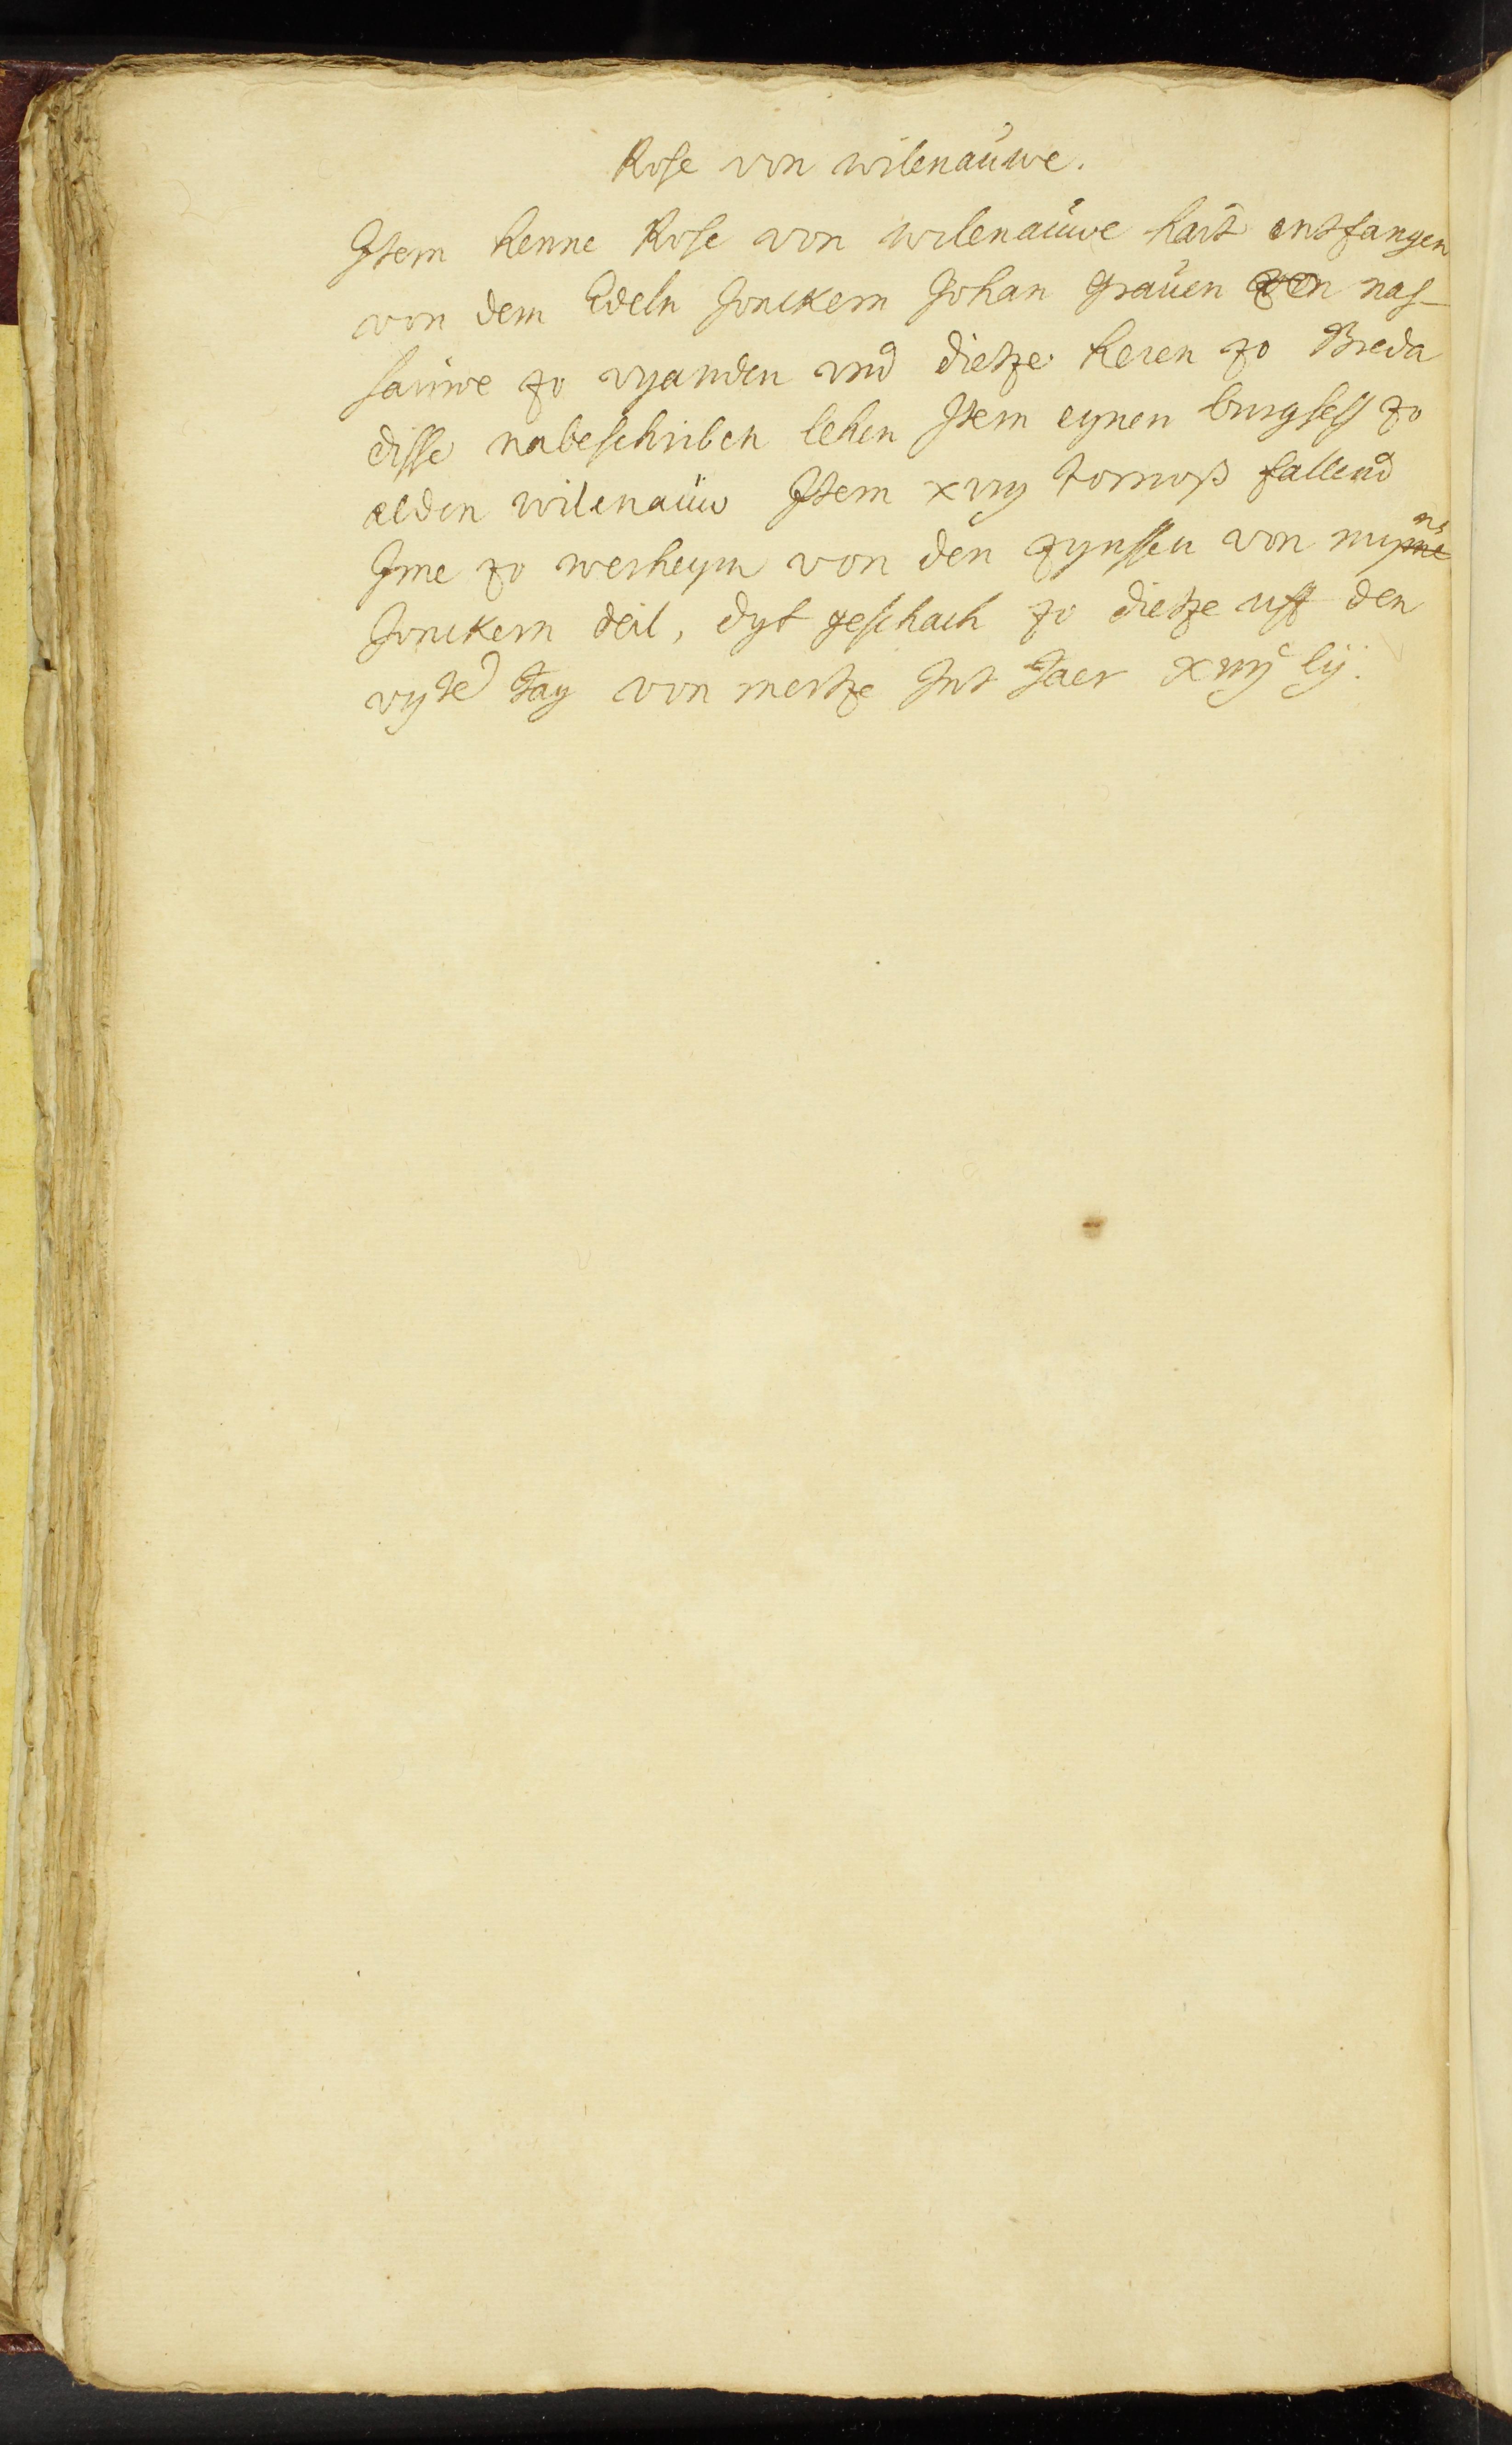 Rose von wilenaúwe.
Jtem henne Rose von wilenaúwe hait entfangen
von dem Edeln Jonckern Johan Graúen von nas-
saúwe zo vyanden vnd dietze heren zo Breda
disse nabeschriben lehen Jtem eynen burgsess zo
alden wilenaúw Jtem xviij tornoß fallend
Jme zo werheym von den zynssen von myns
Jonckern deil, dyt geschach zo dietze uff den
vijte tag von mertze Jnt Jaer xiiijc lij.